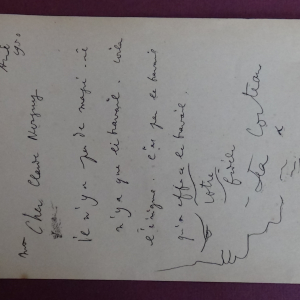 mon Cher Claude Mergny
Août 1950
Il n'y a pas de magie. il
n'y a que le travail. Voilà
l'énigme. C'est par le travail
qu'on efface le travail.
Votre
fidèle
Jean Cocteau